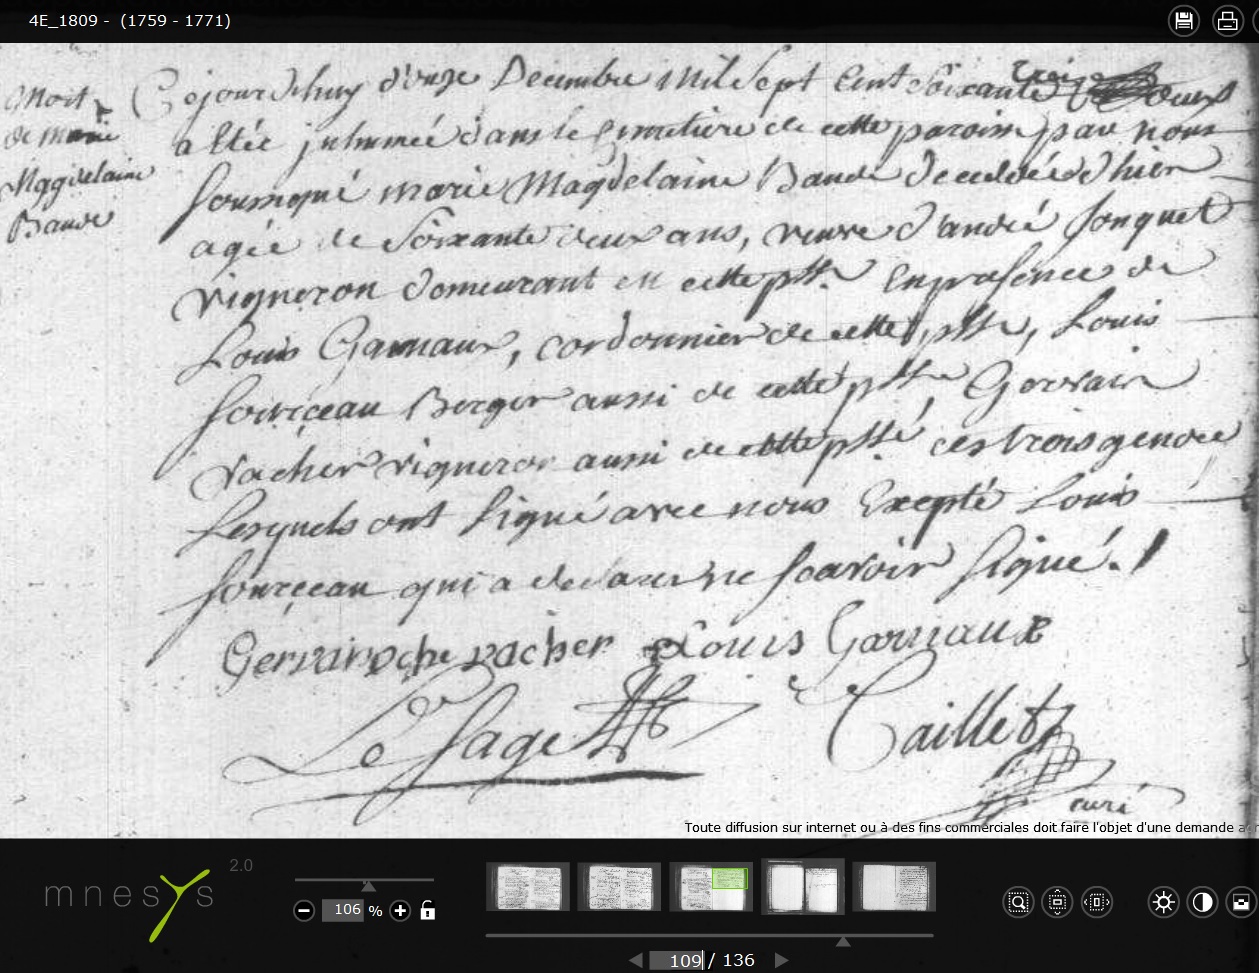 4E_1809 - (1759 - 1771)
Mort
de marie
Magdelaine
Baude
Cejourdhuy d'onze Decembre Mil Sept Cent Soixante trois deux
a Etée juhumée dans le Cimetiere de cette paroisse par nous
soussigné marie Magdelaine Baude decedée d'hier
agée de Soixante deux ans, veuve d'andré Jonquet
vigneron demeurant en cette psse. En presence de
Louis Garnaux, cordonnier de cette psse, Louis
fourceau Berger aussi de cette psse Gervais
vacher vigneron aussi de cette psse. ces trois
Lesquels ont signé avec nous Excepté Louis
fourceau qui a declarer ne scavoir signé.
vacher Louis Garnaux
Le Sage Taillet
curé
Toute diffusion sur internet ou à des fins commerciales doit faire l'objet d'une demande
mnesys 2.0
106 %
109 / 136